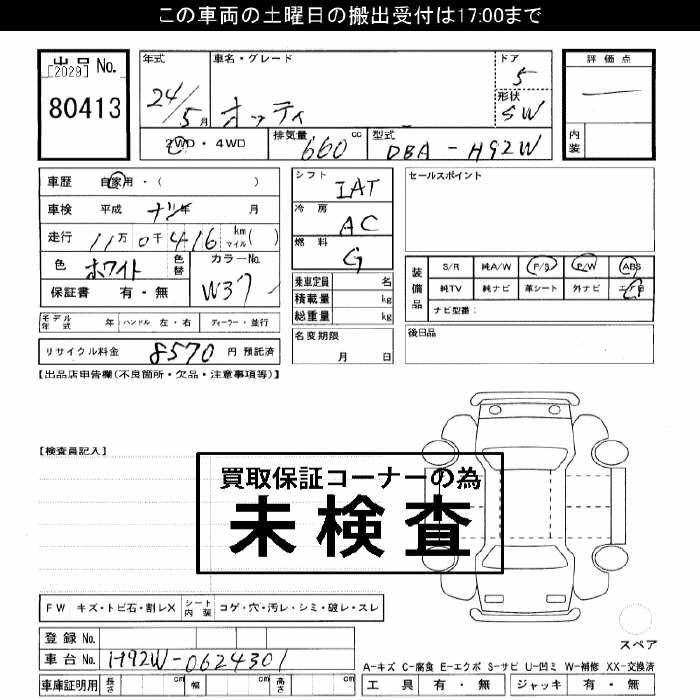 この車両の土曜日の搬出受付は17:00まで
出品 No.
[2029]
80413
年式
24/5月
車名・グレード
オッティ
ドア
5
形状
SW
評価点
内装
2WD・4WD
排気量
660 cc
型式
DBA-H92W
車歴 自家用・( )
車検 平成 ナシ年 月
走行 11万0千416 km マイル( )
色 ホワイト 色替
カラーNo.
W37
保証書 有・無
モデル年式 年 ハンドル 左・右 ディーラー・並行
リサイクル料金 8570 円 預託済
シフト
IAT
冷房
AC
燃料
G
乗車定員 名
積載量 kg
総重量 kg
名変期限
月 日
セールスポイント
装備品
S/R 純A/W P/S P/W ABS
純TV 純ナビ 革シート 外ナビ
ナビ型番:
後日品
【出品店申告欄(不良箇所・欠品・注意事項等)】
【検査員記入】
買取保証コーナーの為
未検査
FW キズ・トビ石・割レX
シート内装
コゲ・穴・汚レ・シミ・破レ・スレ
登録 No.
車台 No. H92W-0624301
車庫証明用 長さ cm 幅 cm 高さ cm
スペア
A-キズ C-腐食 E-エクボ S-サビ U-凹ミ W-補修 XX-交換済
工具 有・無 ジャッキ 有・無